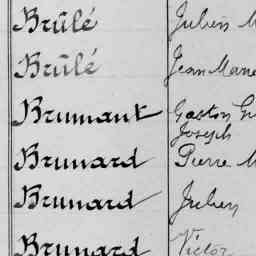 Brûlé Julien
Brûlé Jean Marie
Brumant Gaston
Joseph
Brunard Pierre
Brunard Julien
Brunard Victor